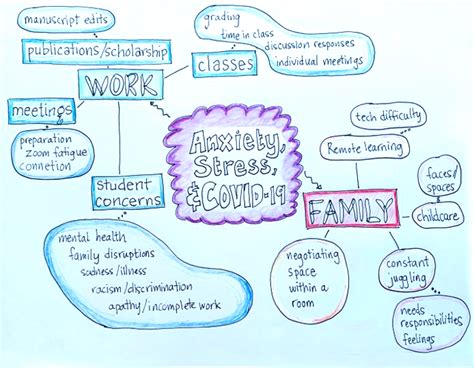 manuscript edits
publications/scholarship
WORK
grading
time in class
discussion responses
individual meetings
classes
meetings
preparation
zoom fatigue
connetion
student
concerns
mental health
family disruptions
sadness/illness
racism/discrimination
apathy/incomplete work
Anxiety,
Stress,
&COVID-19
tech difficulty
Remote learning
FAMILY
faces/
spaces
childcare
negotiating
space
within a
room
constant
juggling
needs
responsibilities
feelings